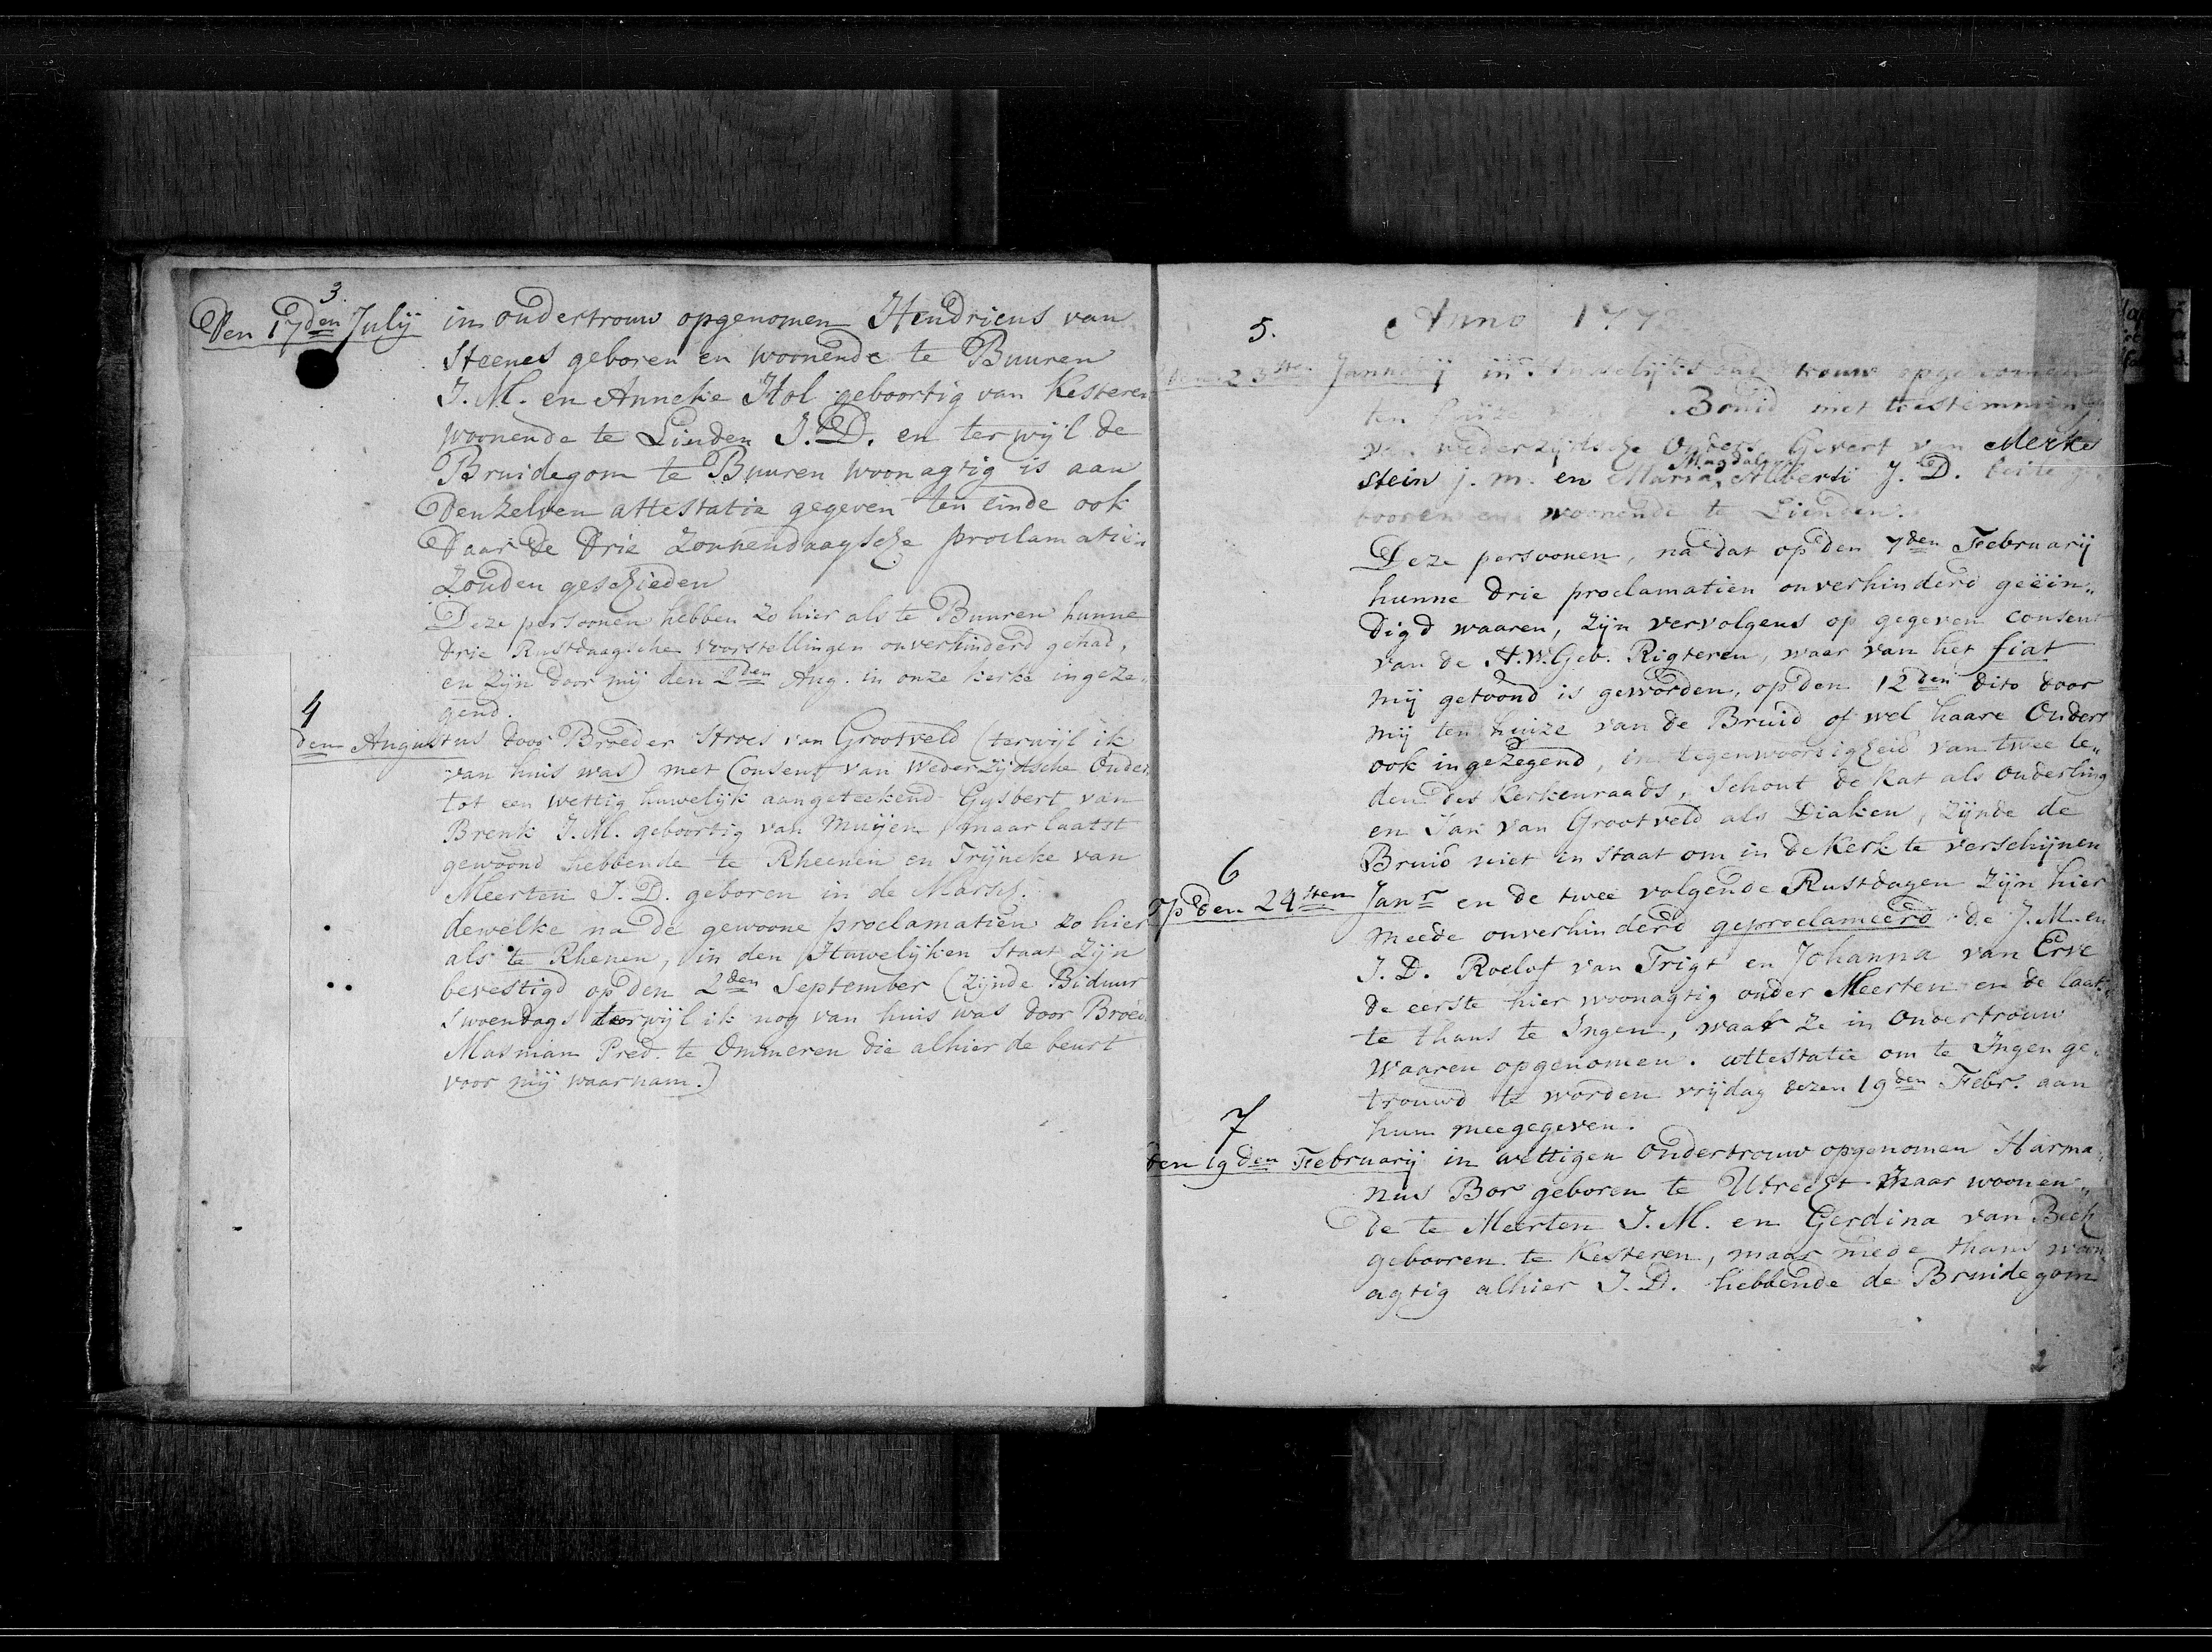 3.
Den 17den Julij in ondertrouw opgenomen Hendricus van
Steenes geboren en woonende te Buuren
J. M. en Anneke Hol geboortig van Kesteren
woonende te Linden J. D. en terwijl de
Bruidegom te Buuren woonagtig is aan
Denzelven attestatie gegeven ten einde ook
Daar De Drie Zonnendaagsche proclamatien
Zouden geschieden
Deze persoonen hebben zo hier als te Buuren hunne
drie Rustdaagsche voorstellingen onverhinderd gehad,
en zijn door mij den 2den Aug. in onze kerke ingeze-
gend.
4
den Augustus door Broeder Stroes van Grootveld (terwijl ik
van huis was) met Consent van Wederzijdsche Ouder
tot een wettig huwelijk aangeteekend Gysbert van
Brenk J. M. geboortig van Muijen maar laatst
gewoond hebbende te Rheenen en Trijneke van
Meerten J. D. geboren in de Marsch.
dewelke na de gewoone proclamatien zo hier
als te Rhenen, in den Huwelijken Staat zijn
bevestigd op den 2den September (zijnde Biduur
Swoendags terwijl ik nog van huis was door Broed
Masman Pred. te Ommeren die alhier de beurt
voor mij waarnam.)
5. Anno 177
den 23ste Januarij in ondertrouw opgenomen
ten huize van de Bruid met toestemming
van wederzijdsche Ouders Gevert van Merke
Magdal
stein j. m. en Maria Alberti J. D. beide ge
booren en woonende te Lienden.
Deze persoonen, na dat op den 7den Februarij
hunne drie proclamatien onverhinderd geëin„
digd waaren, zijn vervolgens op gegeven consent
van de H.W.Geb. Rigteren, waar van het fiat
mij getoond is geworden, op den 12den dito door
mij ten huize van de Bruid of wel haare Ouders
ook ingezegend, in tegenwoordigheid van twee le„
den des Kerkenraads, Schout de Kat als Ouderling
en Jan van Grootveld als Diaken, zijnde de
Bruid niet in staat om in de Kerk te verschijnen
6
op den 24sten Janr en de twee volgende Rustdagen zijn hier
meede onverhinderd geproclameerd de J. M. en
J. D. Roelof van Trigt en Johanna van Erve
de eerste hier woonagtig onder Meerten en de laat„
te thans te Ingen, waar ze in Ondertrouw
Waaren opgenomen. attestatie om te Ingen ge„
trouwd te worden vrijdag dezen 19den Febr. aan
hun meegegeven.
7
den 19den Februarij in wettigen Ondertrouw opgenomen Harma„
nus Bor geboren te Utrecht maar woonen„
de te Meerten J. M. en Gerdina van Beek
gebooren te Kesteren, maar mede thans woon
agtig alhier J. D. hebbende de Bruidegom
2